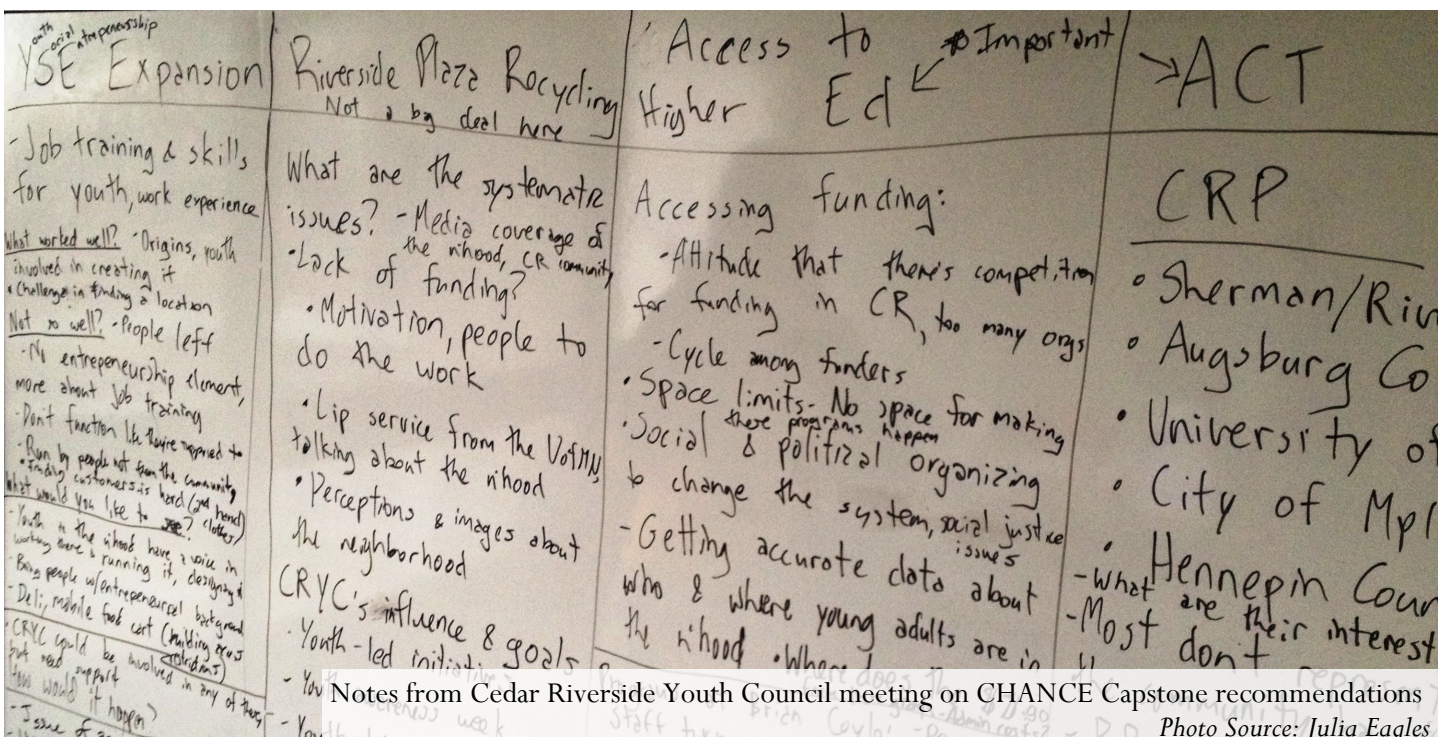 Youth
Social
Entrepeneurship
YSE Expansion
- Job training & skills
for youth, work experience
What worked well? · Origins, youth
involved in creating it
· Challenge in finding a location
Not so well? - People left
- No entrepeneurship element,
more about job training
- Don't function like they're supposed to
- Run by people not from the community
· Finding customers is hard (2nd hand
clothes)
What would you like to see?
- Youth in the n'hood have a voice in
working there & running it, designing it
- Bring people w/entrepeneurial background
- Deli, mobile food cart
· CRYC could be involved in any of these,
but need support
How would it happen?
- Issue of
Riverside Plaza Recycling
Not a big deal here
What are the systematic
issues? - Media coverage of
the n'hood, CR community
· Lack of funding?
· Motivation, people to
do the work
· Lip service from the UofMN,
talking about the n'hood
· Perceptions & images about
the neighborhood
CRYC's influence & goals
- Youth-led initiatives
Access to
Higher Ed
Important
Accessing funding:
- Attitude that there's competition
for funding in CR, too many orgs
- Cycle among funders
· Space limits - No space for making
these programs happen
· Social & political organizing
to change the system, social justice
issues
- Getting accurate data about
who & where young adults are in
the n'hood · Where does
ACT
CRP
· Sherman/Riv
· Augsburg Co
· University of
· City of Mpl
· Hennepin Coun
- What are their interest
- Most don't
Notes from Cedar Riverside Youth Council meeting on CHANCE Capstone recommendations
Photo Source: Julia Eagles